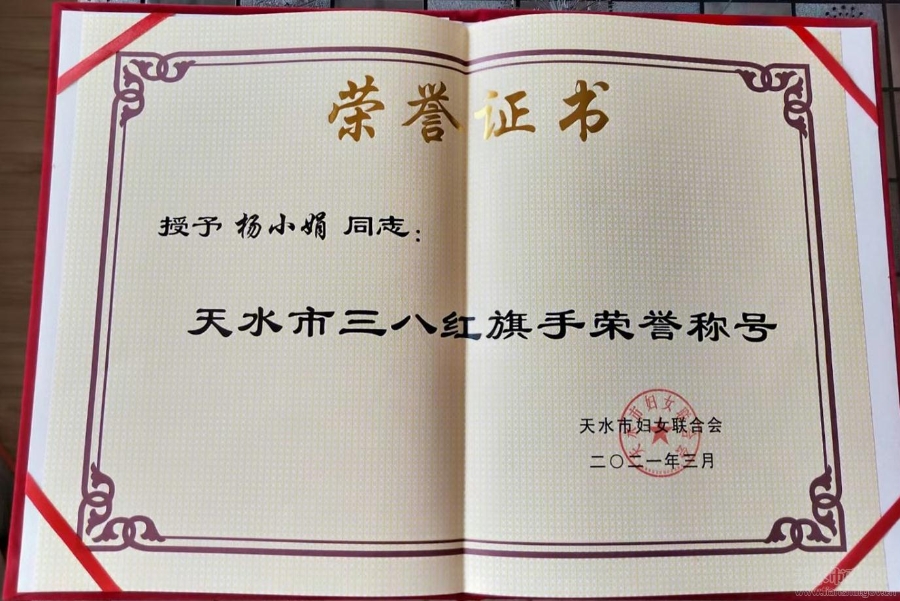 荣誉证书
授予 杨小娟 同志：
天水市三八红旗手荣誉称号
天水市妇女联合会
天水市妇女联合会
二〇二一年三月